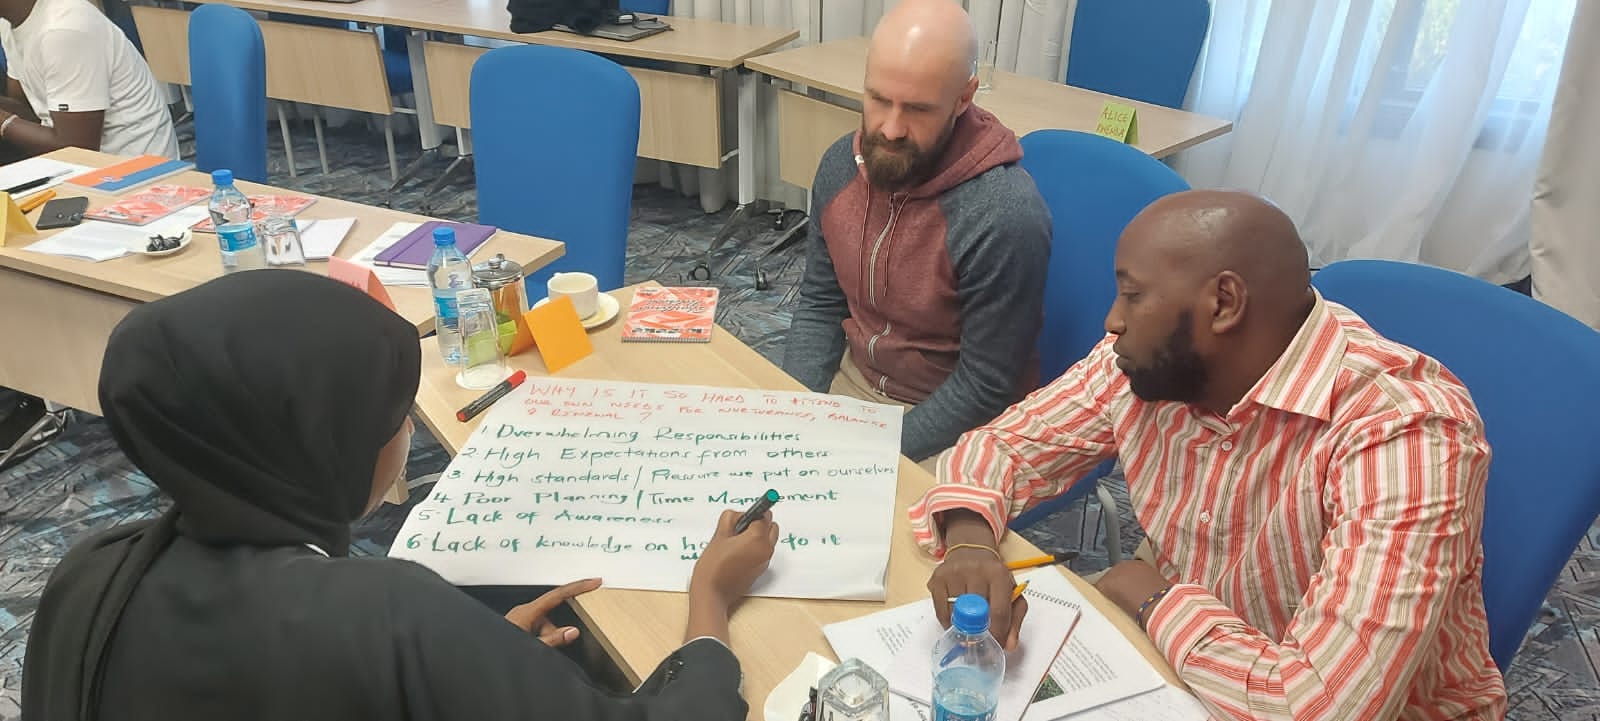 WHY IS IT SO HARD TO ATTEND TO
OUR OWN NEEDS FOR NURTURANCE, BALANCE
& RENEWAL ?
1. Overwhelming Responsibilities
2. High Expectations from others
3. High standards/ Pressure we put on ourselves
4 Poor Planning/Time Man ement
5. Lack of Awareness
6. Lack of knowledge on ho do it
ALICE